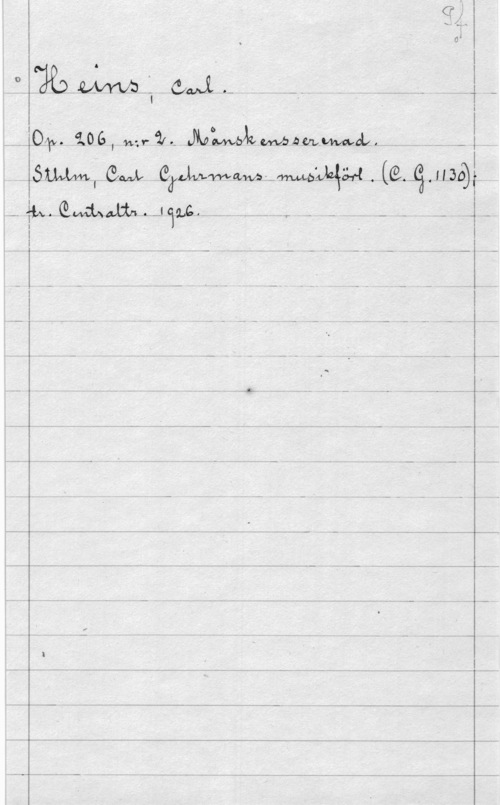 Pf
Heins, Carl.
Op. 206, n:r 2. Månskensserenad.
Sthlm, Carl Gehrmans musikförl. (C. G. 1130);
tr. Centraltr. 1926.